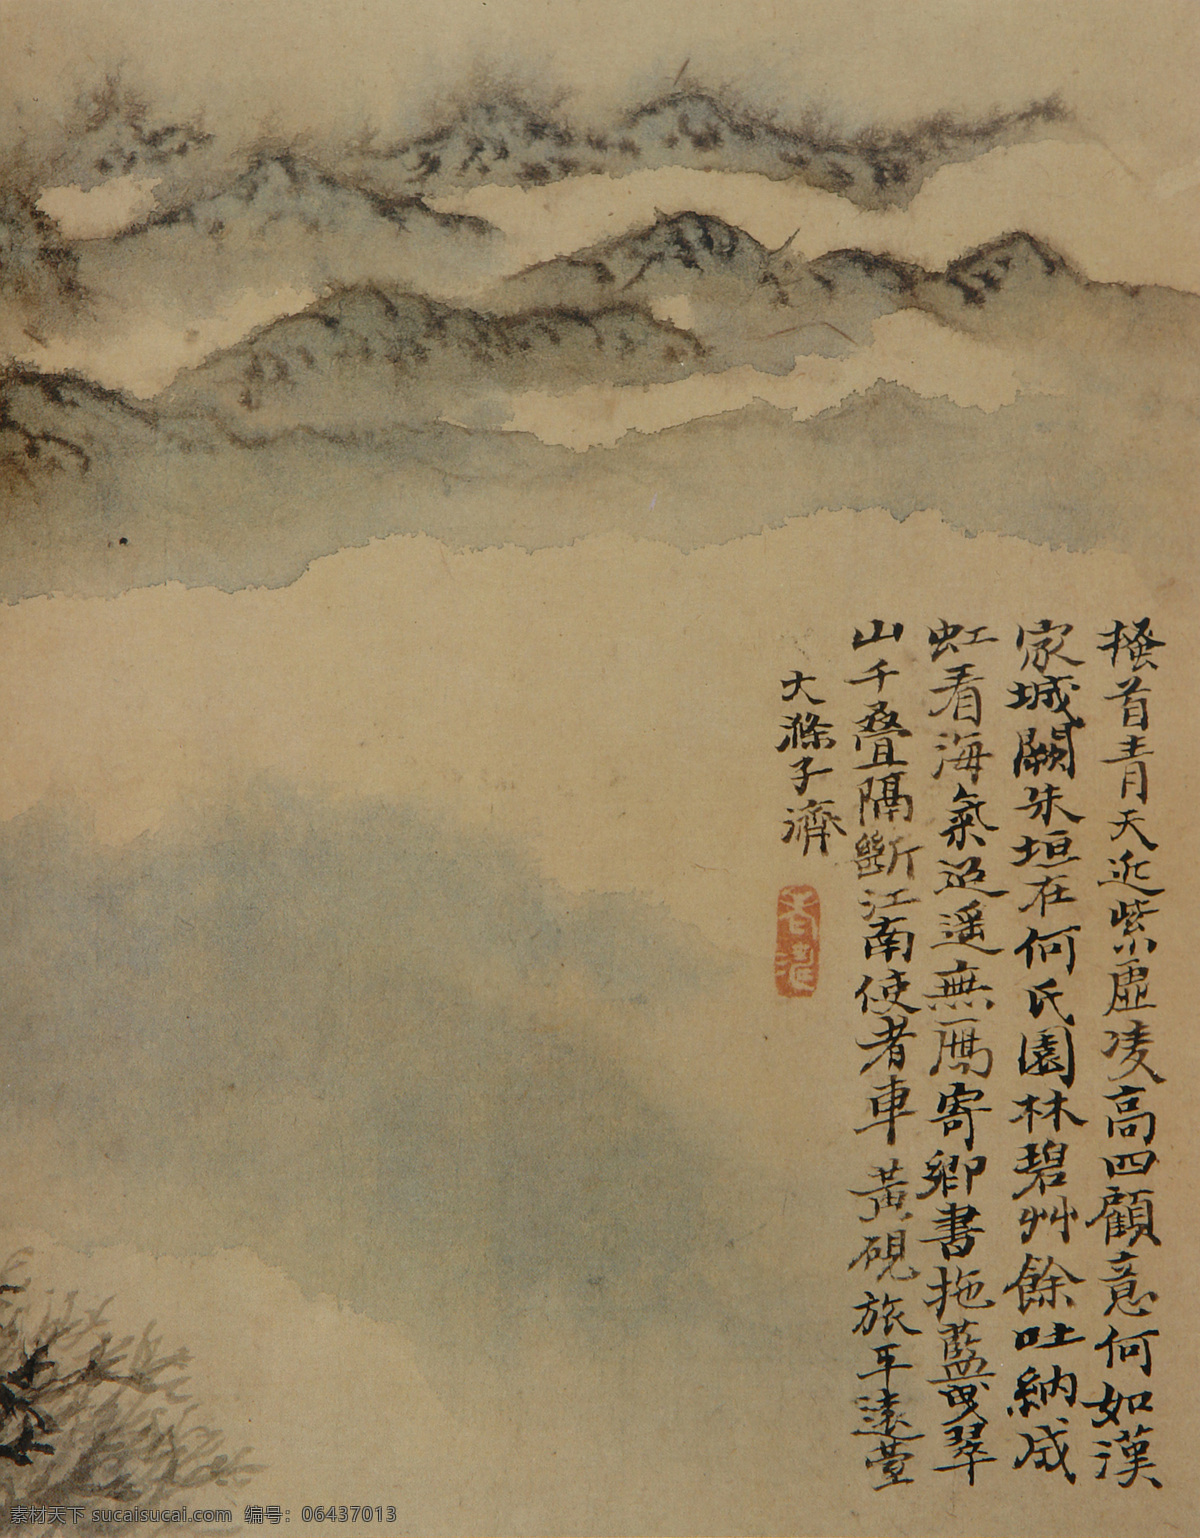 搔首青天近紫虛凌高四顧意何如漢
家城闕朱垣在何氏園林碧艸餘吐納成
虹看海氣迢遥無鴈寄卿書拖藍曳翠
山千叠隔斷江南使者車 黃硯旅平遠臺
大滌子濟
素材天下 sucaisucai.com 编号：06437013